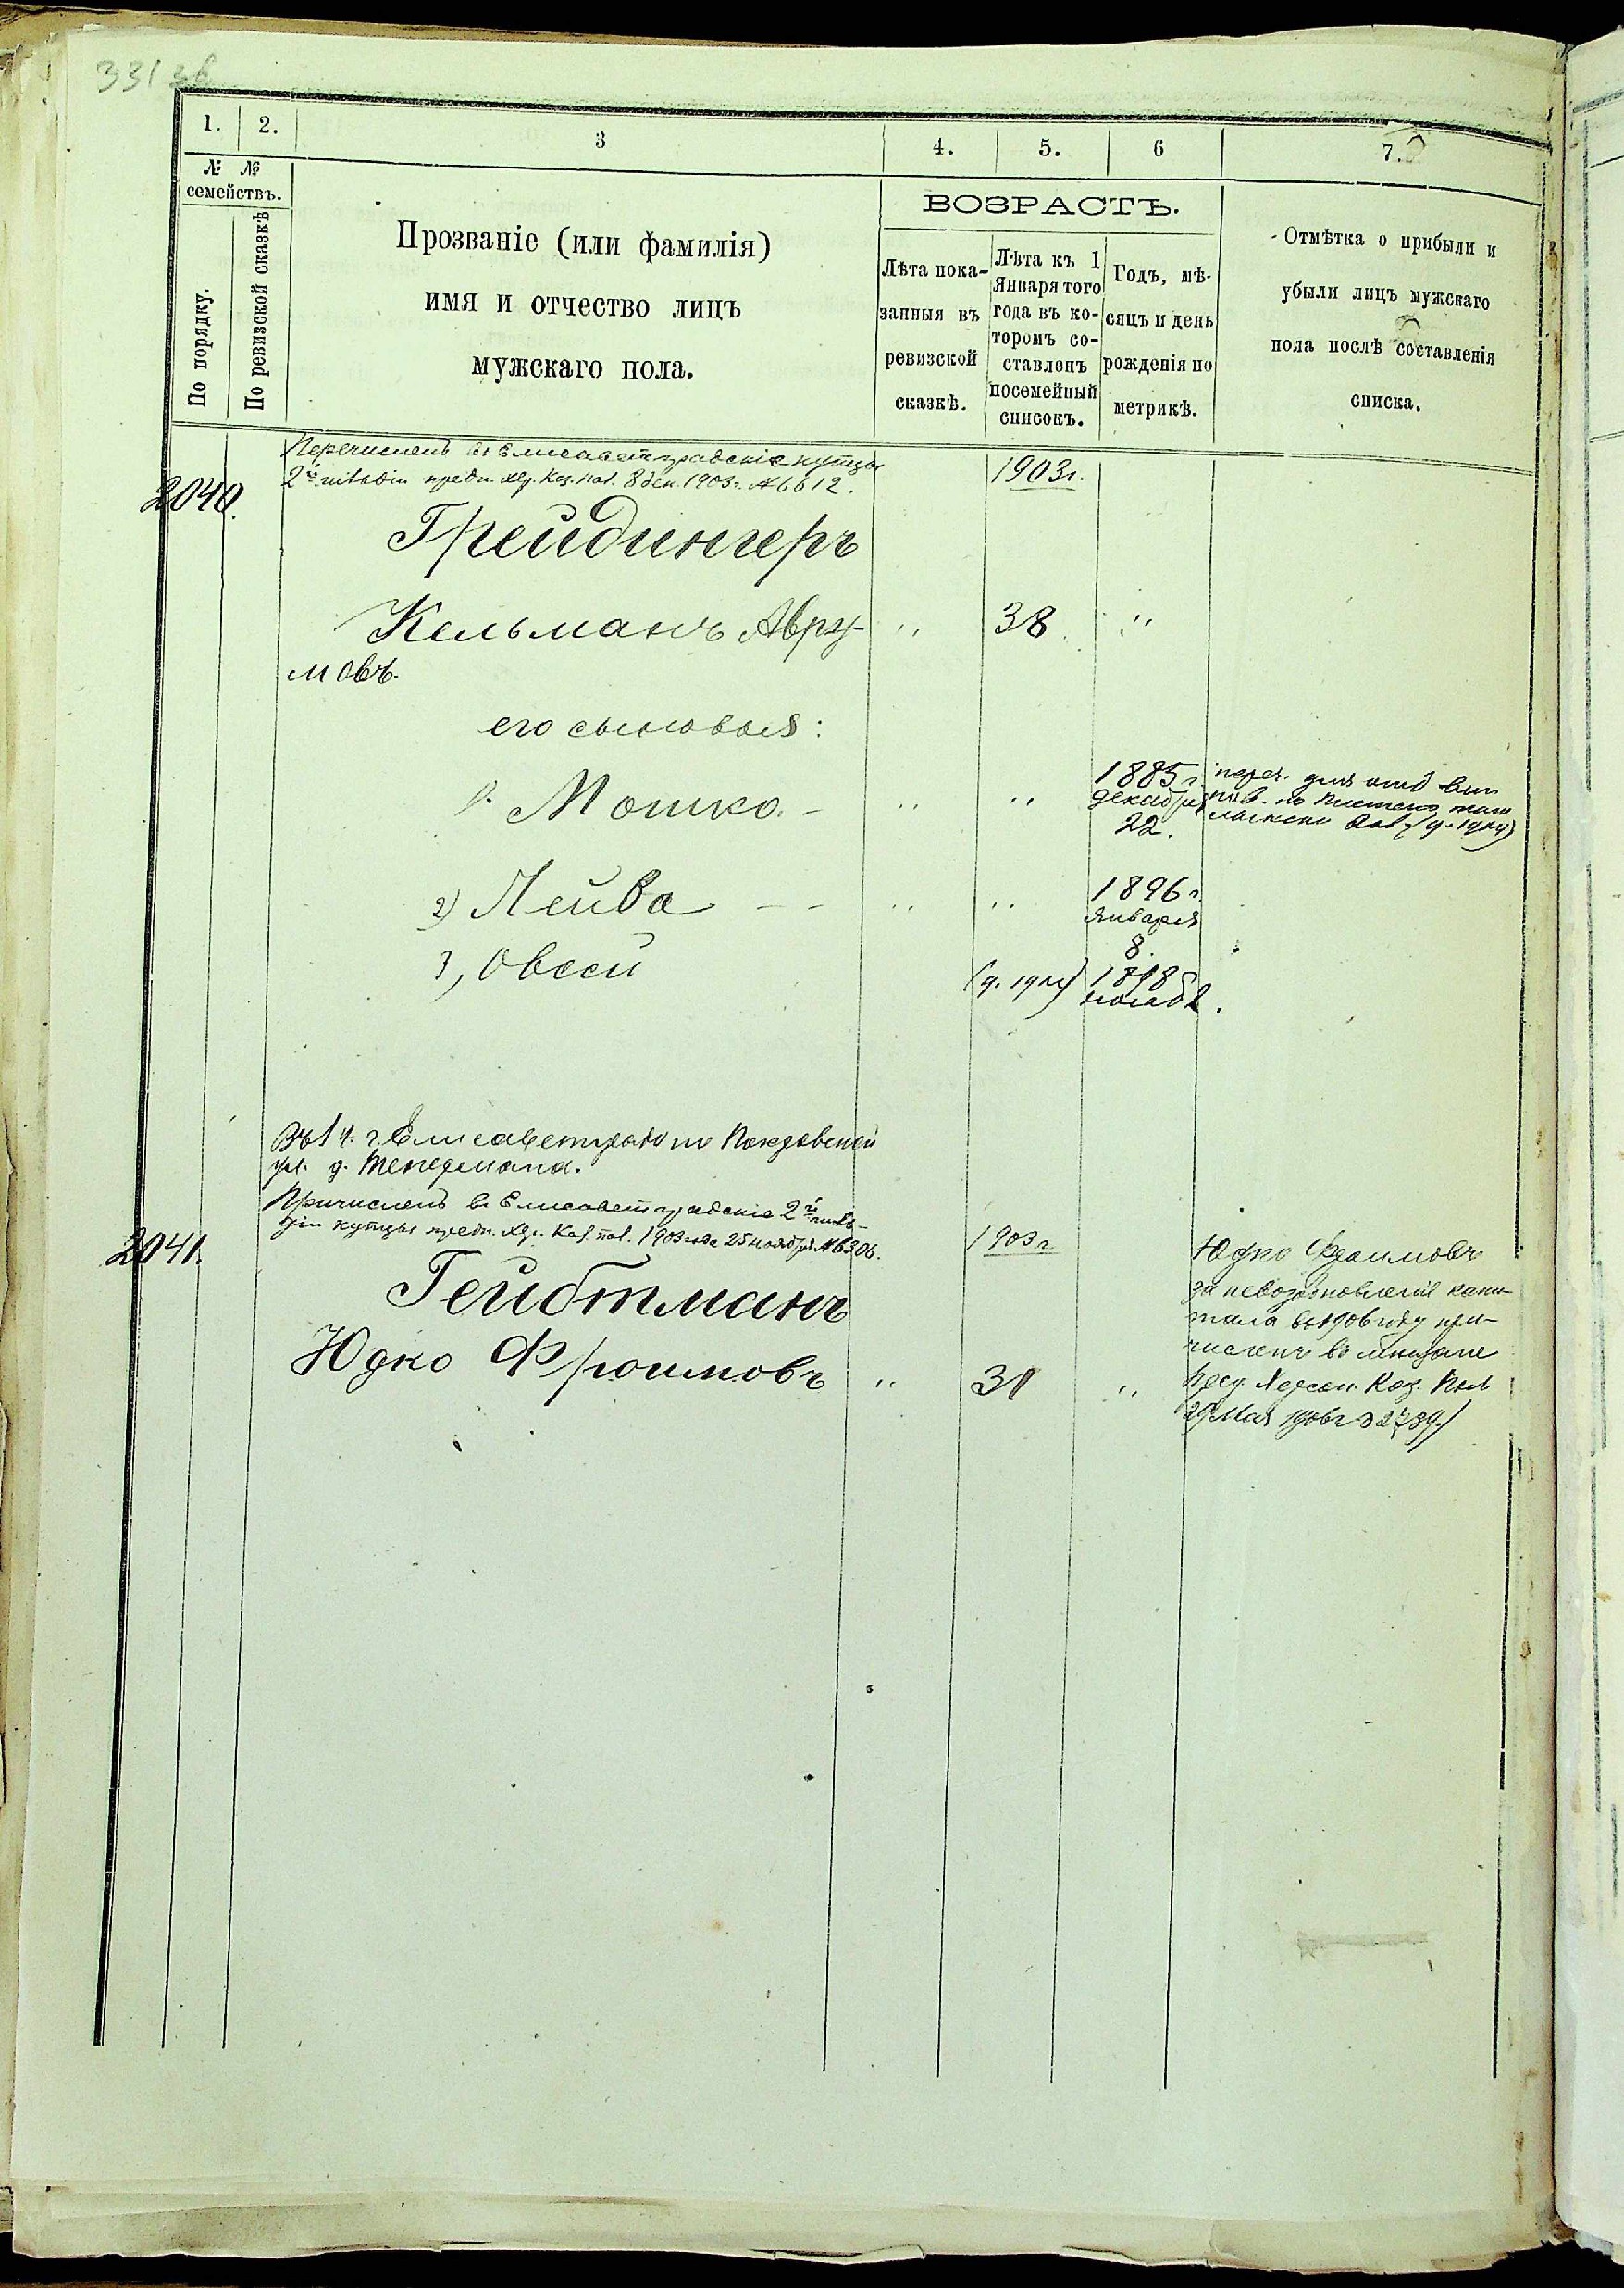 331 зв
1. 2. 3 4. 5. 6 7.
№ №
семействъ.
По порядку.
По ревизской сказкѣ
Прозваніе (или фамилія)
имя и отчество лицъ
мужскаго пола.
ВОЗРАСТЪ.
Лѣта пока-
занныя въ
ревизской
сказкѣ.
Лѣта къ 1
Января того
года въ ко-
торомъ со-
ставленъ
посемейный
списокъ.
Годъ, мѣ-
сяцъ и день
рожденія по
метрикѣ.
Отмѣтка о прибыли и
убыли лицъ мужскаго
пола послѣ составленія
списка.
Перечисленъ въ Елисаветградскіе купцы
2й гильдіи предп. Хер. Каз. Пал. 8 дек. 1903 г. № 6612.
2040. 1903 г.
Грейдингеръ
Кельманъ Авру- " 38 "
мовъ.
его сыновья:
1. Мошко. - " " 1885 г. декабря 22.
2) Лейва - - " " 1896 г. января 8.
3, Овсей 1898 нояб
Въ 1 ч. г. Елисаветграда по Покровской
ул. д.
Причисленъ въ Елисаветградскіе 2й гиль-
діи купцы предп. Хер. Каз. Пал. 1903 года 25 ноября № 6306.
2041. 1903 г.
Гейбтманъ
Юдко Фроимовъ " 31 "
Юдко Фроимовъ
за невозобновленіе капи-
тала въ 1906 году при-
численъ въ мѣщане
Пред. Херсон. Каз. Пал.
29 Мая 1906 г